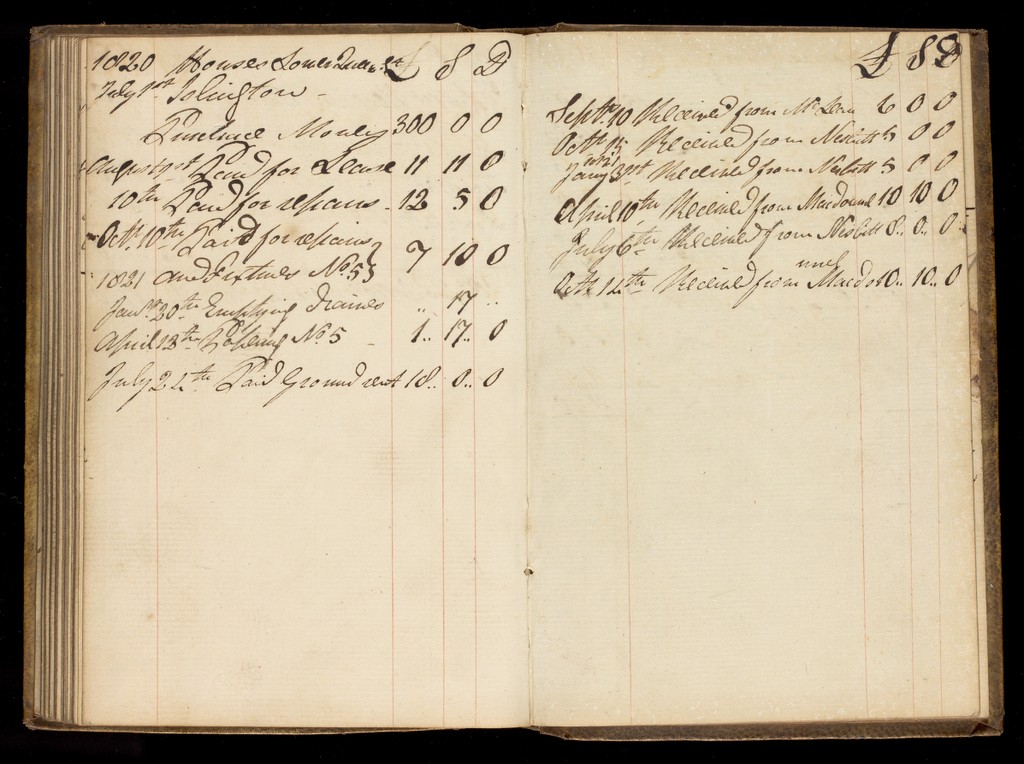 1820 Houses Lower Queen St £ S D
July 1st Islington -
Purchace Money 300 0 0
August 1st Paid for Lease 11 11 0
10th Paid for repairs - 12 5 0
Octr 10th Paid for repairs
1821 and Fixtures No. 5 } 7 10 0
Jany 20th Emptying Draines .. 17 ..
April 13th No. 5 - 1.. 17.. 0
July 24th Paid Ground rent 18.. 0.. 0
£ S D
Septr 10 Received from Mc 6 0 0
Octr 15 Received from Nesbitt 5 0 0
1821
Jany 31st Received from Nesbitt 5 0 0
April 10th Received from Macdonnel 10 10 0
July 6th Received from Nesbitt 8.. 0.. 0
nnel
Octr 14th Received from Macdo 10.. 10.. 0